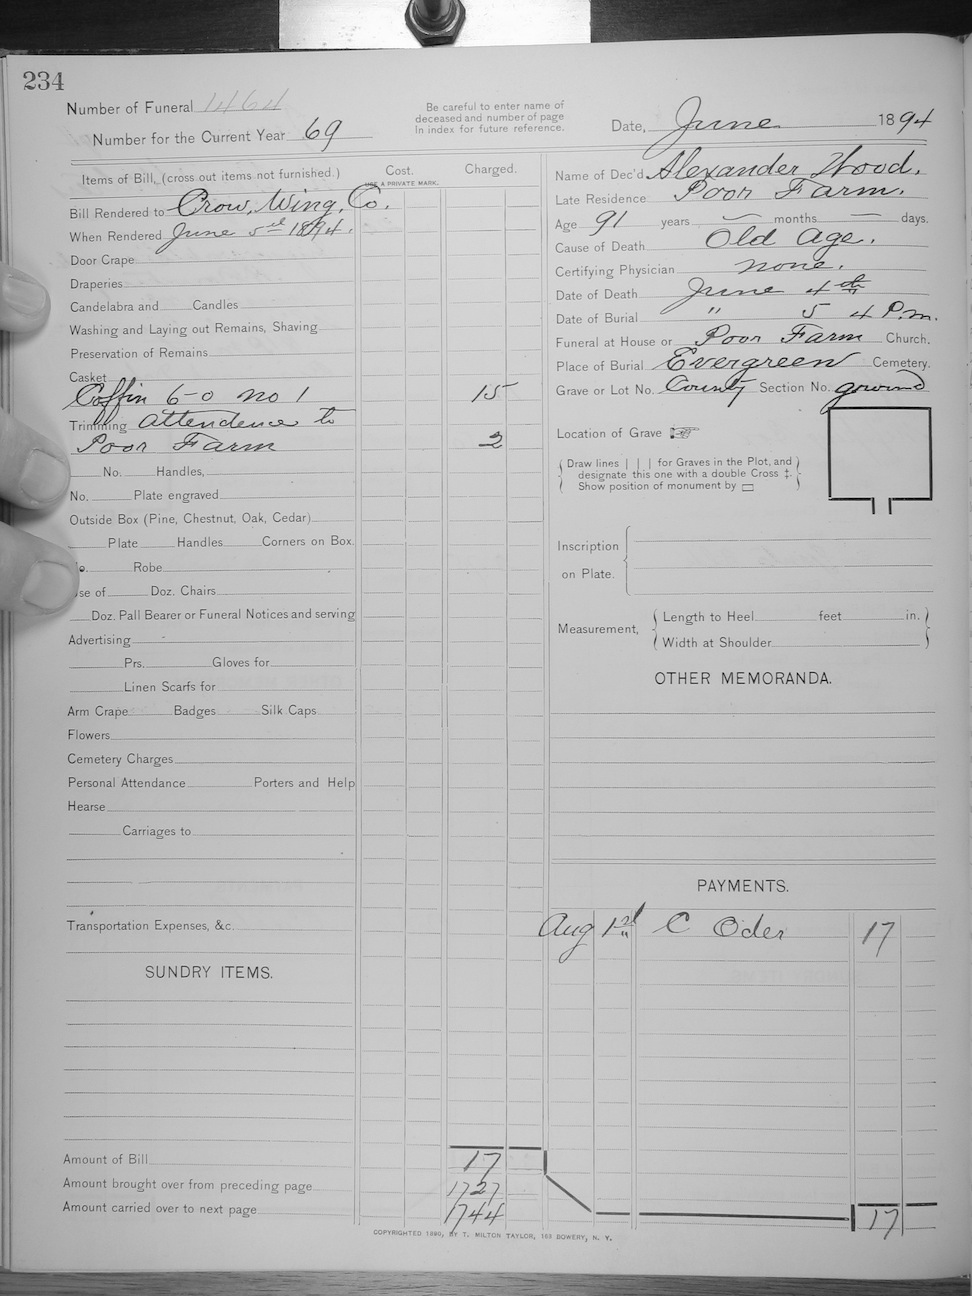 234
Number of Funeral 1464
Number for the Current Year 69
Be careful to enter name of
deceased and number of page
in index for future reference.
Date, June 1894
Items of Bill, (cross out items not furnished.)
Cost.
USE A PRIVATE MARK.
Charged.
Bill Rendered to Crow Wing, Co.
When Rendered June 5th 1894.
Door Crape
Draperies
Candelabra and Candles
Washing and Laying out Remains, Shaving
Preservation of Remains
Casket
Coffin 6-0 no 1 15
Trimming attendence to
Poor Farm 2
No. Handles,
No. Plate engraved
Outside Box (Pine, Chestnut, Oak, Cedar)
Plate Handles Corners on Box.
o. Robe
se of Doz. Chairs
Doz. Pall Bearer or Funeral Notices and serving
Advertising
Prs. Gloves for
Linen Scarfs for
Arm Crape Badges Silk Caps
Flowers
Cemetery Charges
Personal Attendance Porters and Help
Hearse
Carriages to
Transportation Expenses, &c.
SUNDRY ITEMS.
Amount of Bill 17
Amount brought over from preceding page 1727
Amount carried over to next page 1744
Name of Dec'd Alexander Wood.
Late Residence Poor Farm.
Age 91 years — months — days.
Cause of Death Old Age.
Certifying Physician none.
Date of Death June 4th
Date of Burial " 5 4 P.m.
Funeral at House or Poor Farm Church.
Place of Burial Evergreen Cemetery.
Grave or Lot No. County Section No. ground
Location of Grave ☞
Draw lines | | | for Graves in the Plot, and
designate this one with a double Cross ‡.
Show position of monument by ▭
Inscription
on Plate.
Measurement,
Length to Heel feet in.
Width at Shoulder
OTHER MEMORANDA.
PAYMENTS.
Aug 1st C Oder 17
17
COPYRIGHTED 1890, BY T. MILTON TAYLOR, 163 BOWERY, N. Y.